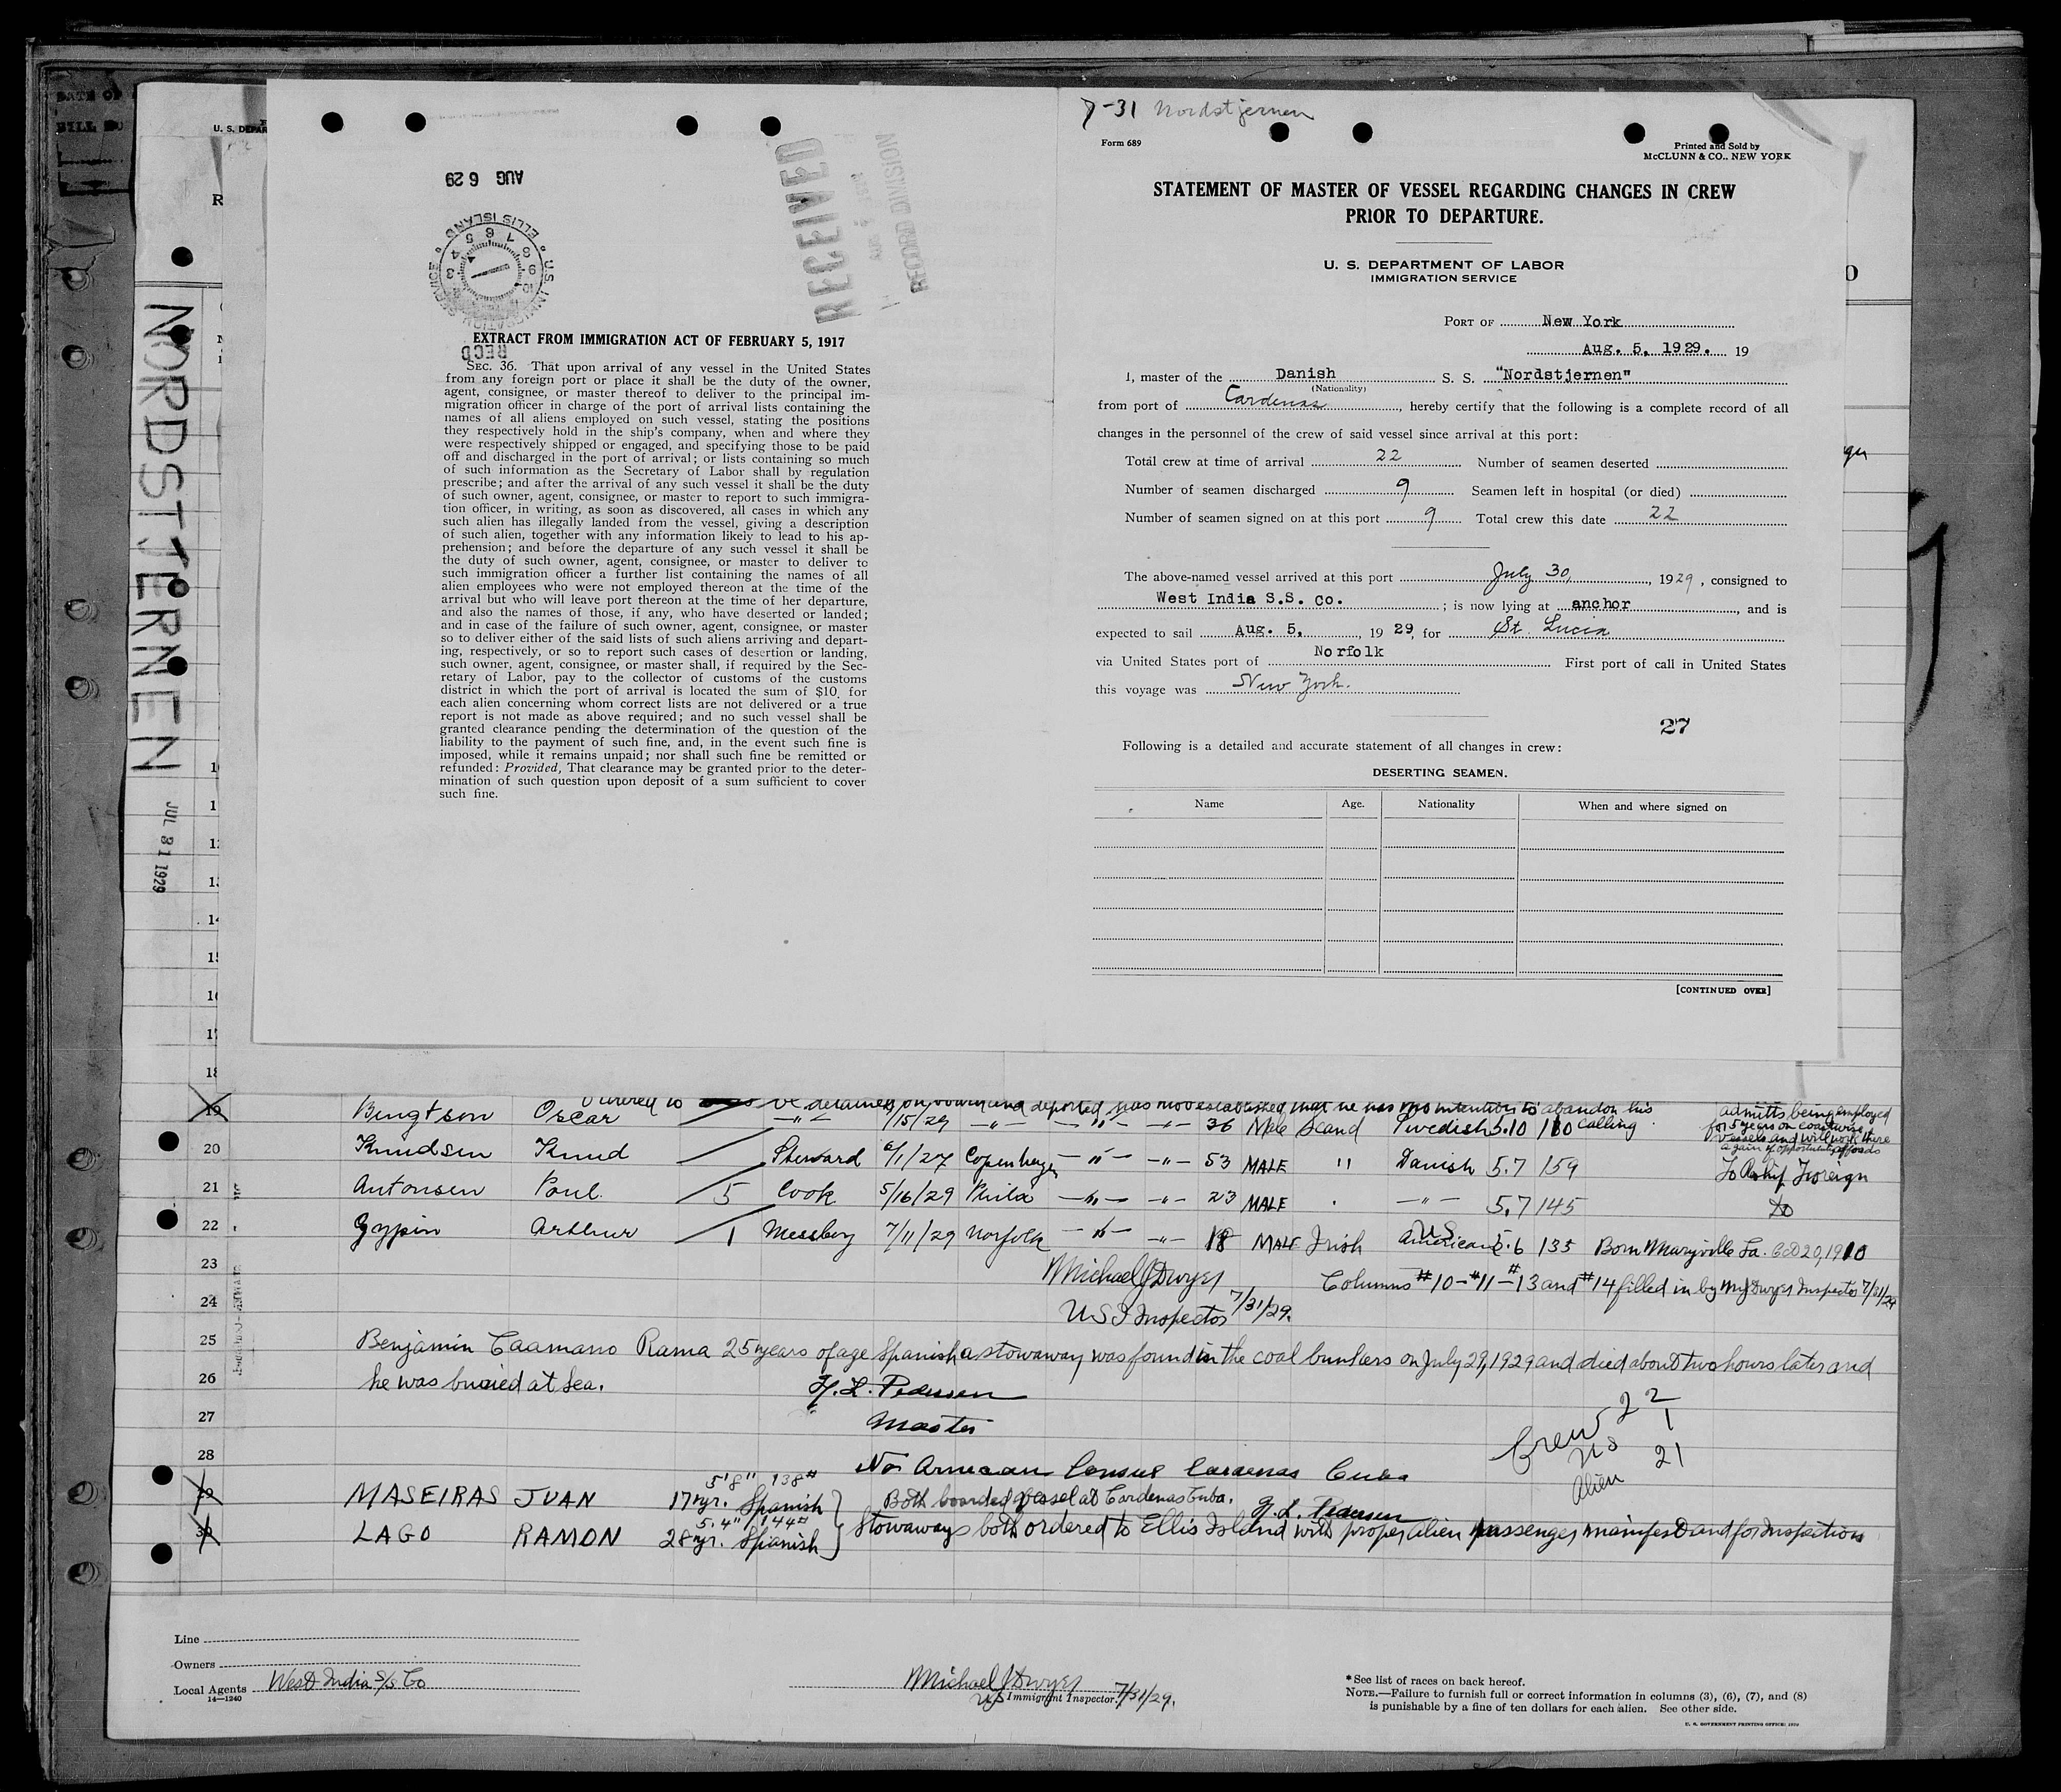 DATE OF
U. S. DEPAR
R
NORDSTJERNEN
JUL 31 1929
AUG 6 29
U.S. IMMIGRATION SERVICE
ELLIS ISLAND
RECD
RECEIVED
RECORD DIVISION
EXTRACT FROM IMMIGRATION ACT OF FEBRUARY 5, 1917
SEC. 36. That upon arrival of any vessel in the United States
from any foreign port or place it shall be the duty of the owner,
agent, consignee, or master thereof to deliver to the principal im-
migration officer in charge of the port of arrival lists containing the
names of all aliens employed on such vessel, stating the positions
they respectively hold in the ship's company, when and where they
were respectively shipped or engaged, and specifying those to be paid
off and discharged in the port of arrival; or lists containing so much
of such information as the Secretary of Labor shall by regulation
prescribe; and after the arrival of any such vessel it shall be the duty
of such owner, agent, consignee, or master to report to such immigra-
tion officer, in writing, as soon as discovered, all cases in which any
such alien has illegally landed from the vessel, giving a description
of such alien, together with any information likely to lead to his ap-
prehension; and before the departure of any such vessel it shall be
the duty of such owner, agent, consignee, or master to deliver to
such immigration officer a further list containing the names of all
alien employees who were not employed thereon at the time of the
arrival but who will leave port thereon at the time of her departure,
and also the names of those, if any, who have deserted or landed;
and in case of the failure of such owner, agent, consignee, or master
so to deliver either of the said lists of such aliens arriving and depart-
ing, respectively, or so to report such cases of desertion or landing,
such owner, agent, consignee, or master shall, if required by the Sec-
retary of Labor, pay to the collector of customs of the customs
district in which the port of arrival is located the sum of $10 for
each alien concerning whom correct lists are not delivered or a true
report is not made as above required; and no such vessel shall be
granted clearance pending the determination of the question of the
liability to the payment of such fine, and, in the event such fine is
imposed, while it remains unpaid; nor shall such fine be remitted or
refunded: Provided, That clearance may be granted prior to the deter-
mination of such question upon deposit of a sum sufficient to cover
such fine.
7-31 Nordstjernen
Form 689
Printed and Sold by
McCLUNN & CO., NEW YORK
STATEMENT OF MASTER OF VESSEL REGARDING CHANGES IN CREW
PRIOR TO DEPARTURE.
U. S. DEPARTMENT OF LABOR
IMMIGRATION SERVICE
PORT OF New York
Aug. 5, 1929. 19
I, master of the Danish S. S. "Nordstjernen"
(Nationality)
from port of Cardenas, hereby certify that the following is a complete record of all
changes in the personnel of the crew of said vessel since arrival at this port:
Total crew at time of arrival 22 Number of seamen deserted
Number of seamen discharged 9 Seamen left in hospital (or died)
Number of seamen signed on at this port 9 Total crew this date 22
The above-named vessel arrived at this port July 30, 1929, consigned to
West India S.S. Co. ; is now lying at anchor, and is
expected to sail Aug. 5, 19 29, for St. Lucia
via United States port of Norfolk First port of call in United States
this voyage was New York.
27
Following is a detailed and accurate statement of all changes in crew:
DESERTING SEAMEN.
Name Age. Nationality When and where signed on
[CONTINUED OVER]
14
18
Ordered to be detained on board and deported, has not established that he has no intention to abandon his
19 Bengtson Oscar —"— /15/29 —"— —"— —"— 36 Male Scand Swedish 5.10 180 calling.
admitts being employed
for 5 years on coastwise
vessels and will work there
again if opportunity affords
20 Knudsen Knud Steward 6/1/27 Copenhagen —"— —"— 53 MALE " Danish 5.7 159 To Reship Foreign
21 Antonsen Poul 5 Cook 5/16/29 Phila —"— —"— 23 MALE —"— 5.7 145 Do
22 Arthur 1 Messboy 7/11/29 Norfolk —"— —"— 18 MALE Irish US American 5.6 135 Born Maryville La. Oct 20, 1910
23 Michael J Dwyer Columns #10-#11-#13 and #14 filled in by MJ Dwyer Inspector 7/31/29
24 US I Inspector 7/31/29.
25 Benjamin Caamano Rama 25 years of age Spanish a stowaway was found in the coal bunkers on July 29, 1929 and died about two hours later and
26 he was buried at sea. H. L. Pedersen
27 Master
Crew 22
US 1
Alien 21
28 No American Consul Cardenas Cuba
5'8" 138#
29 MASEIRAS JUAN 17 yr. Spanish } Both boarded vessel at Cardenas Cuba. H. L. Pedersen
5.4" 144#
30 LAGO RAMON 28 yr. Spanish } Stowaways both ordered to Ellis Island with proper alien passenger manifest and for Inspection
Line
Owners
Local Agents West India S/S Co
14—1240
Michael J Dwyer
US Immigrant Inspector. 7/31/29.
*See list of races on back hereof.
NOTE.—Failure to furnish full or correct information in columns (3), (6), (7), and (8)
is punishable by a fine of ten dollars for each alien. See other side.
U. S. GOVERNMENT PRINTING OFFICE: